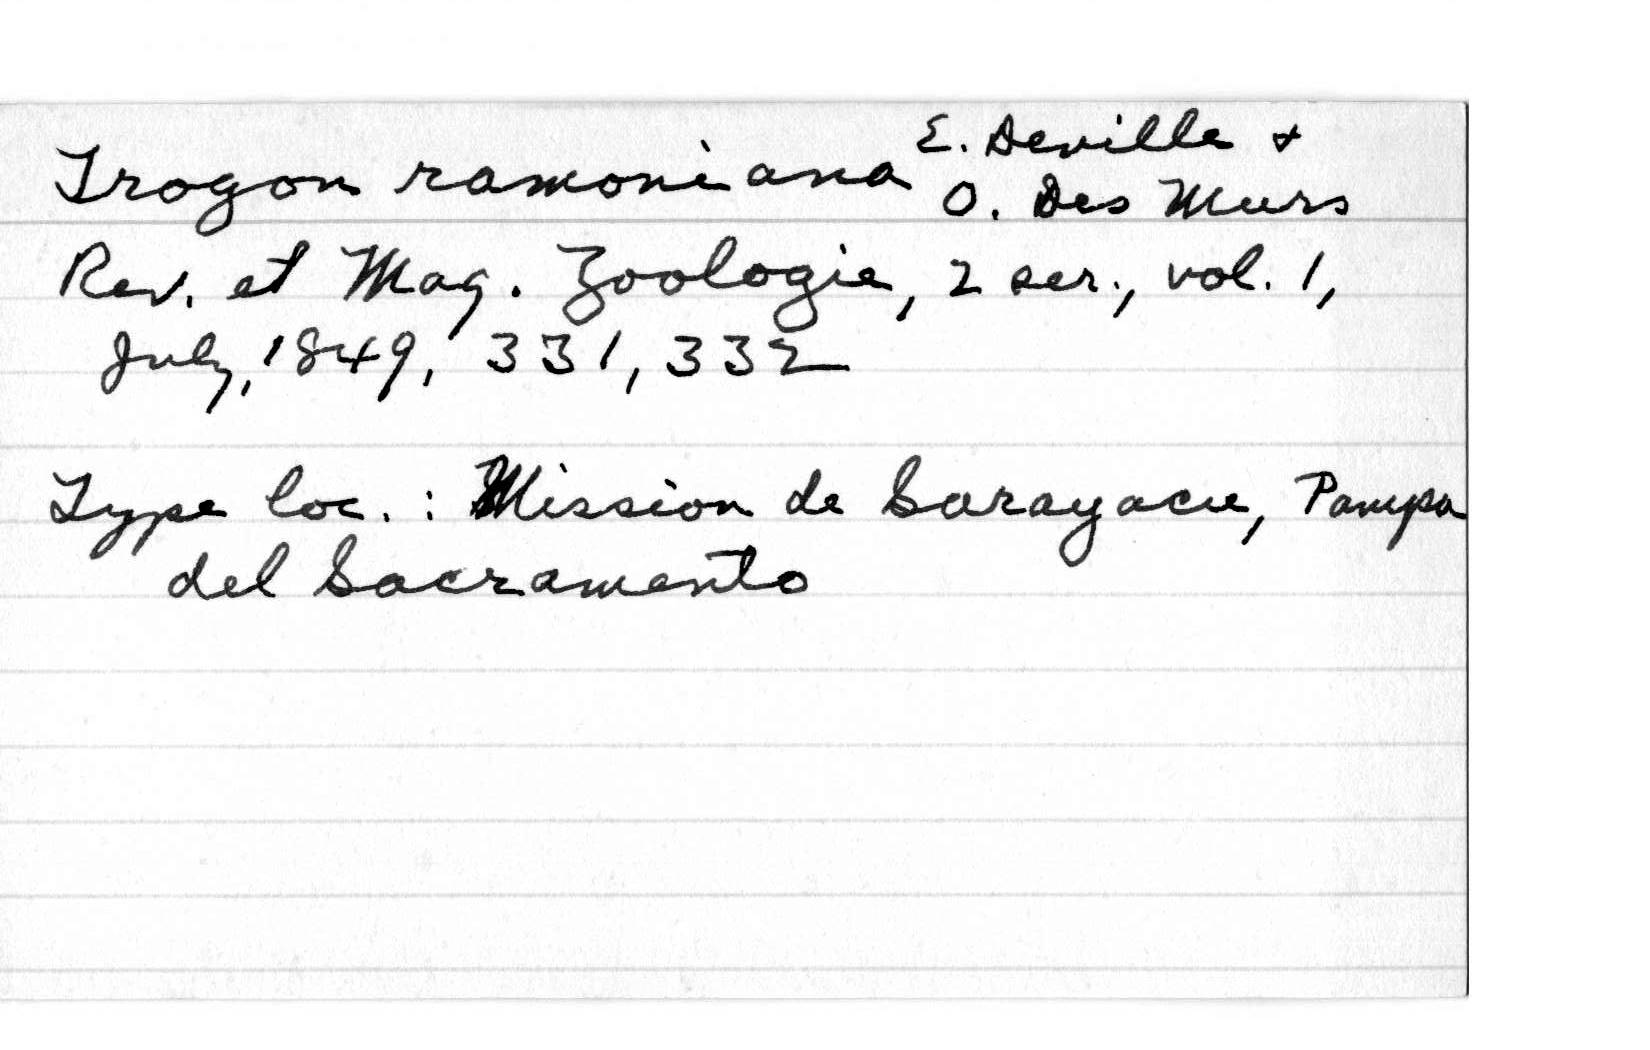 Trogon ramoniana E. Deville &
O. Des Murs
Rev. et Mag. Zoologie, 2 ser., vol. 1,
July, 1849, 331, 332
Type loc.: Mission de Sarayacu, Pampa
del Sacramento